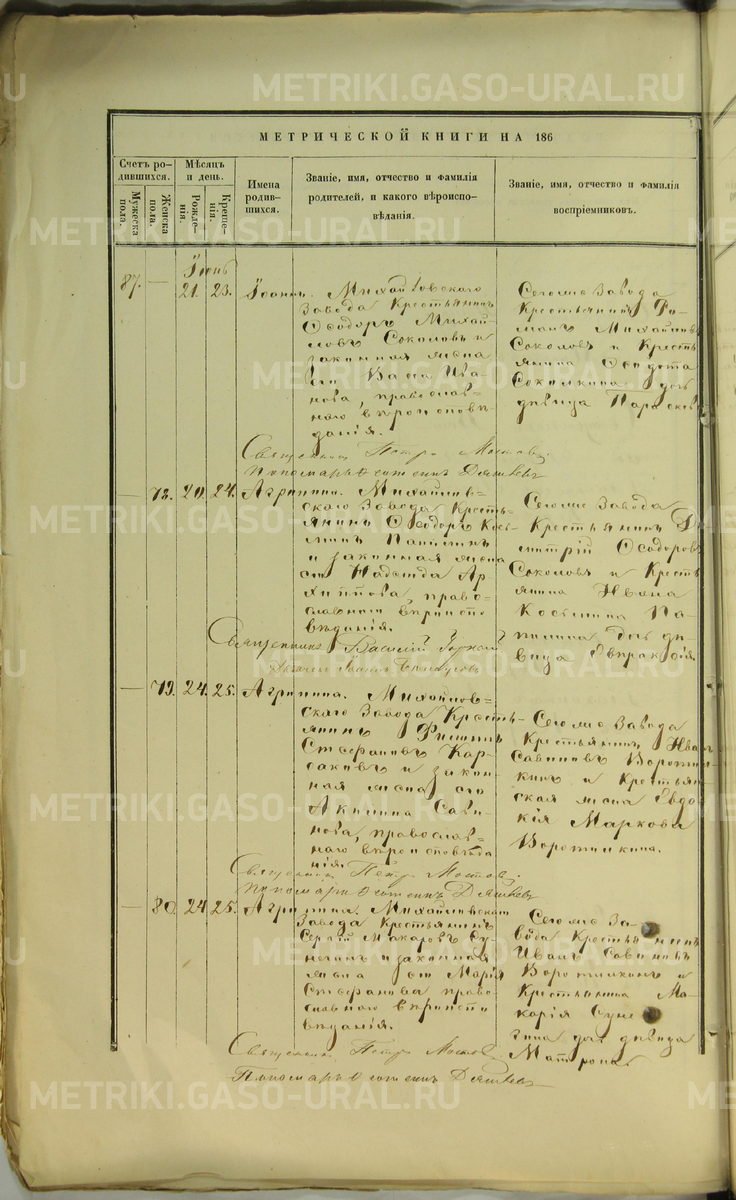 METRIKI.GASO-URAL.RU
МЕТРИЧЕСКОЙ КНИГИ НА 186
Счетъ родившихся.
Мѣсяцъ и день.
Мужеска пола.
Женска пола.
Рожденія.
Крещенія.
Имена родившихся.
Званіе, имя, отчество и фамилія
родителей, и какого вѣроиспо-
вѣданія.
Званіе, имя, отчество и фамилія
воспріемниковъ.
Іюнь
87. — 21. 23. Іоаннъ.
Михайловскаго
Завода Крестьянинъ
Ѳеодоръ Михай-
ловъ Соколовъ и
законная жена
его Васса Ива-
нова, православ-
наго вѣроисповѣ-
данія.
Сегоже Завода
Крестьянинъ Ро-
манъ Михайловъ
Соколовъ и Кресть
янина Ѳедота
Соколкина дочь
дѣвица Параскев
Священникъ Петръ
Пономарь
— 78. 20. 24. Агриппина.
Михайлов-
скаго Завода Кресть-
янинъ Ѳеодоръ Кось-
минъ Папилинъ
и законная жена
его Надежда Ар
хиппова, право-
славнаго вѣроиспо
вѣданія.
Сегоже Завода
Крестьянинъ Ди
митрій Ѳеодоровъ
Соколовъ и Кресть
янина Ивана
Косьмина Па-
пилина дочь дѣ-
вица Евпраксія.
Священникъ Василій
— 79. 24. 25. Агриппина.
Михайлов-
скаго Завода Кресть-
янинъ
Стефановъ Кар-
саковъ и закон-
ная жена его
Акилина Сави-
нова, православ-
наго вѣроисповѣда
нія.
Сегоже Завода
Крестьянинъ Иванъ
Савиновъ Воротил-
кинъ и Крестьян-
ская жена Евдо
кія Маркова
Воротилкина.
Священникъ Петръ
Пономарь
— 80. 24. 25. Агриппина.
Михайловскаго
Завода Крестьянинъ
Сергій Макаровъ Су-
негинъ и законная
жена его Марія
Стефанова право-
славнаго вѣроиспо
вѣданія.
Сегоже За-
вода Крестьянинъ
Иванъ Савиновъ
Воротилкинъ и
Крестьянина Ма-
карія Суне
гина дочь дѣвица
Матрона.
Священникъ Петръ
Пономарь